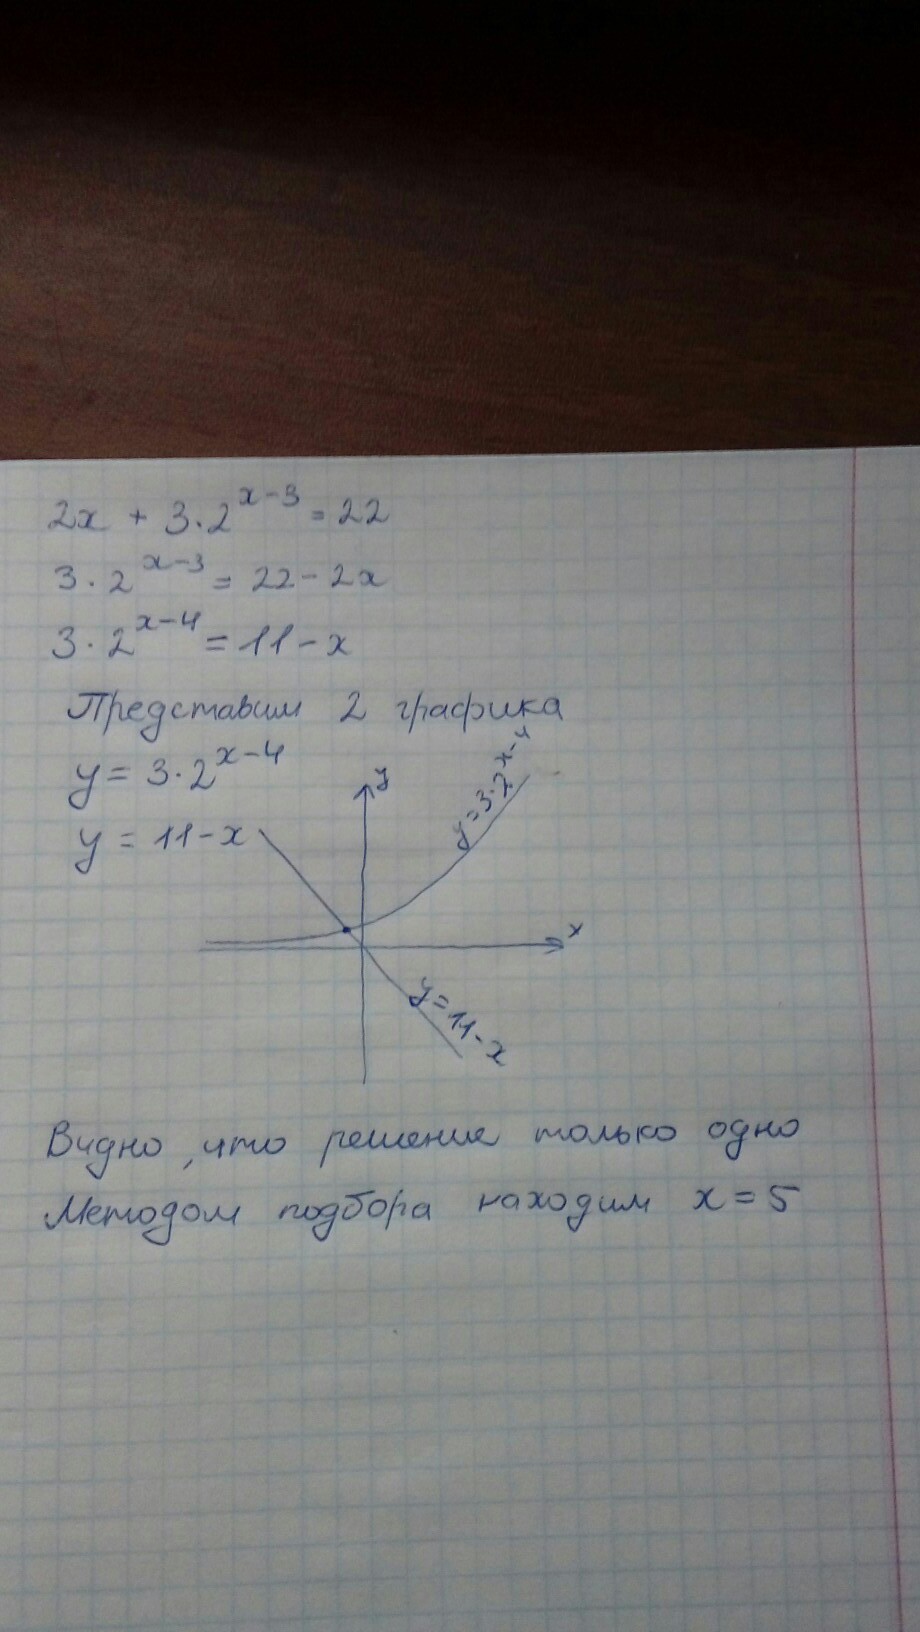 2x + 3·2^{x-3} = 22
3·2^{x-3} = 22 - 2x
3·2^{x-4} = 11 - x
Представим 2 графика
y = 3·2^{x-4}
y = 11 - x
y
y = 3·2^{x-4}
x
y = 11 - x
Видно, что решение только одно
Методом подбора находим x = 5